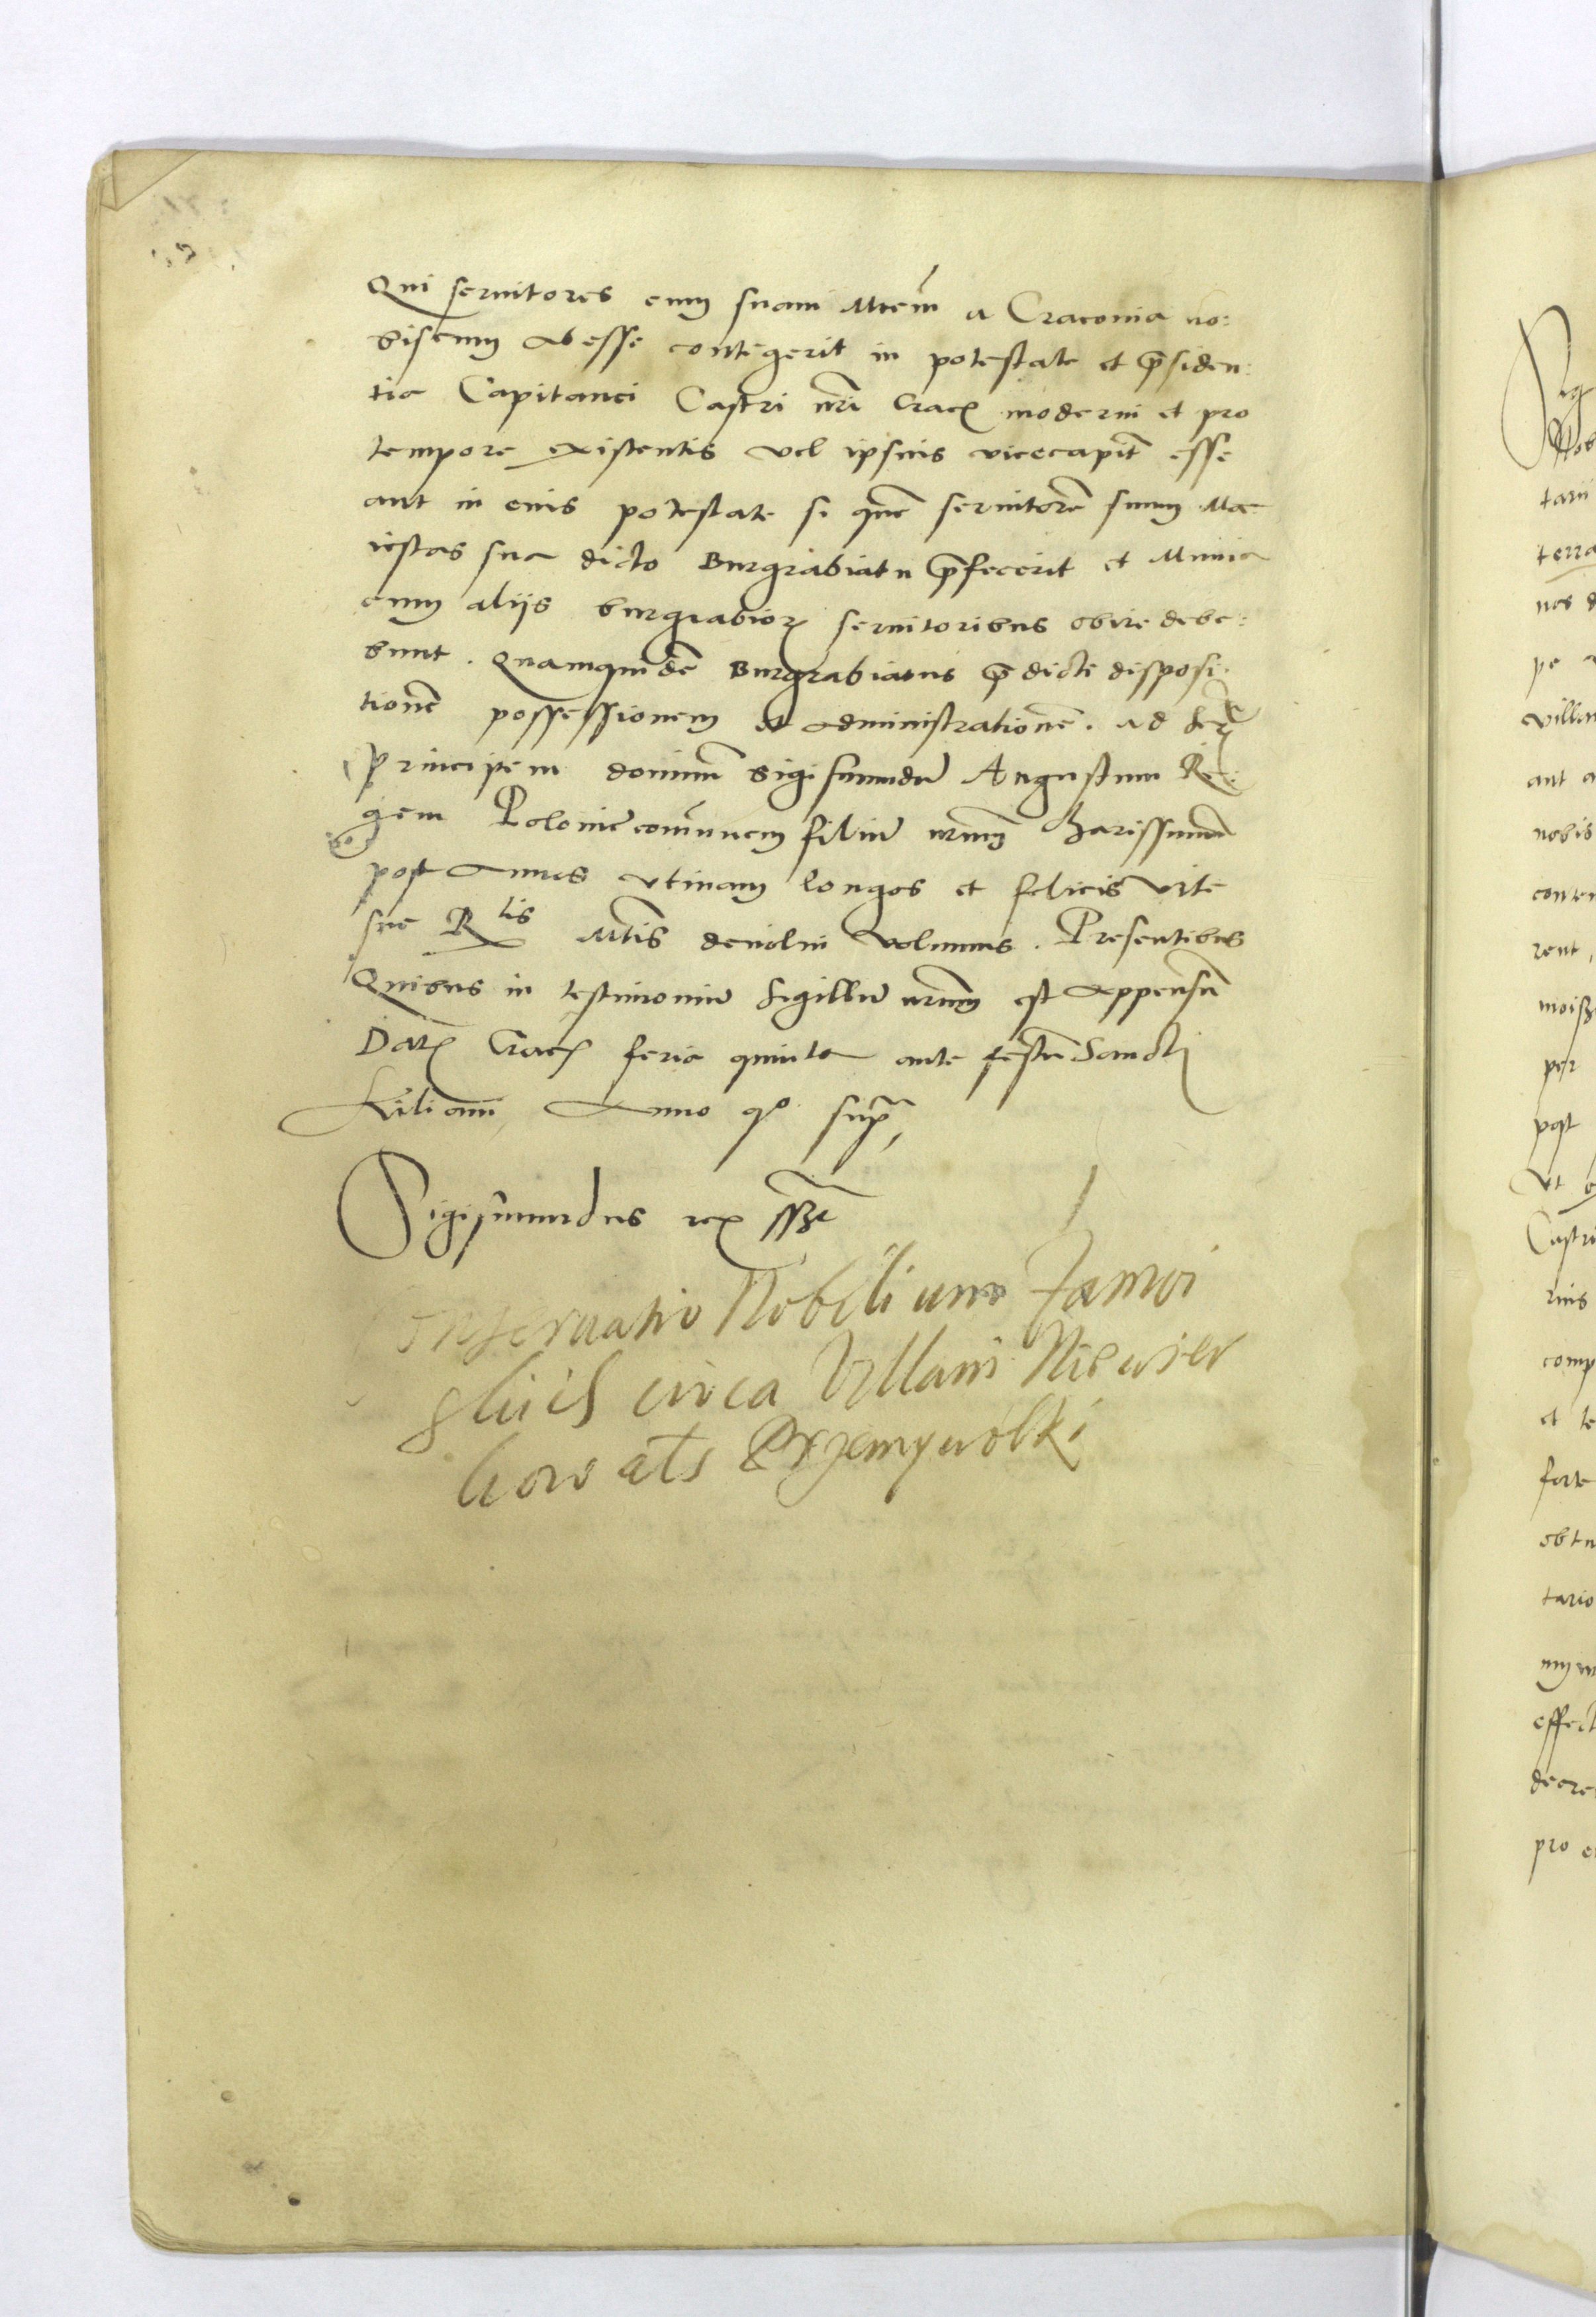 Qui seruitores cum suam Mtem̄ a Craconia no:
biscum abesse contigerit in potestate et p̄siden:
tia Capitanei Castri nr̄i Crac̄ moderni et pro
tempore existentis vel ipsius vicecapit̄ esse
aut in eius potestate si quē seruitorē suum Ma
iestas sua dicto Burgrabiatu p̄fecerit et Munia
cum alijs burgrabior̄ seruitoribus obire debe:
bunt. Quamquidē Burgrabiatus p̄dicti disposi:
tionē possessionem et administrationē. ad Ser
principem dominū Sigismundū Augustum Re:
gem Polonie com̄unem filiū nr̄um Charissimū
post annos vtinam longos et felicis vite
sue Rtis Mtis deuolui volumus. Presentibus
Quibus in testimoniū sigillū nr̄um est appensū
Dat̄ Crac̄ feria quinta ante festū Sancti
Kiliani Anno qo sup̄
Sigismundus rex sst
Inseruatio Nobilium Jamroi
circa Villam
als Przemywolki